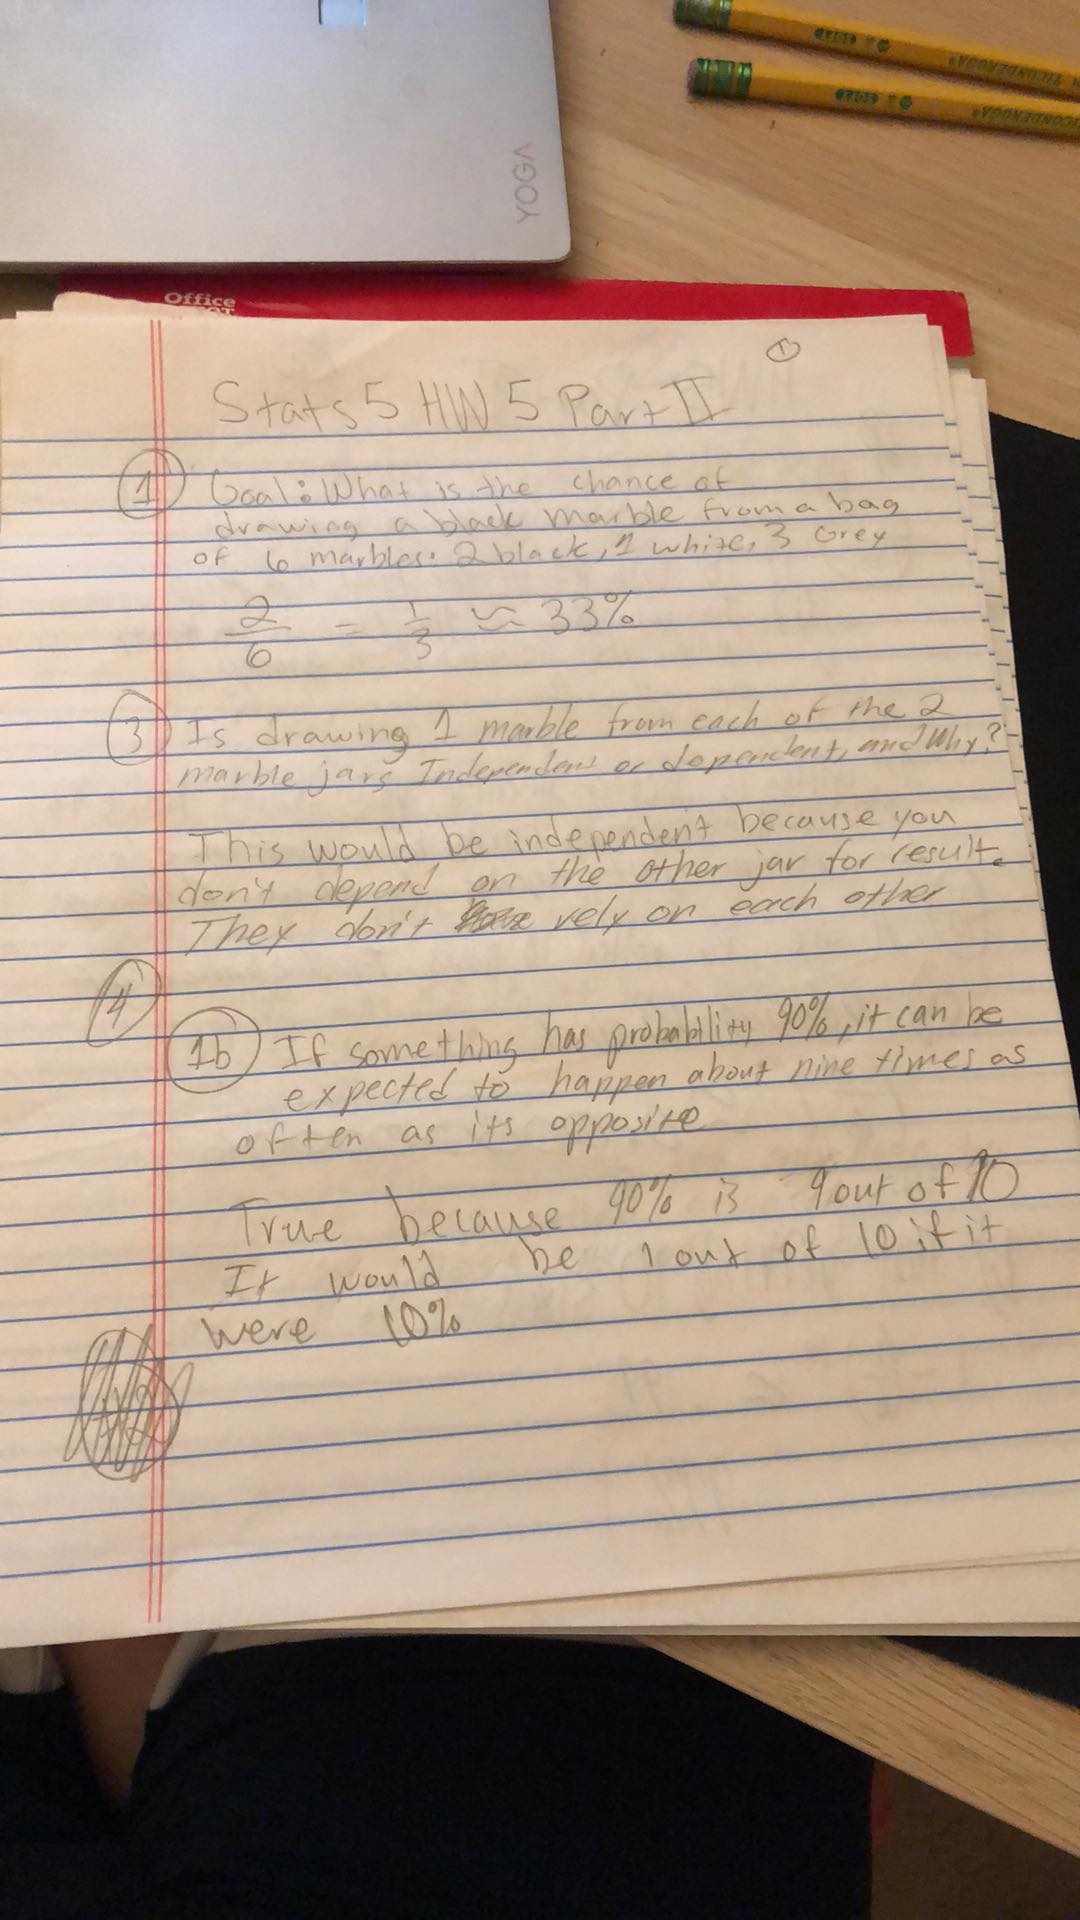 TICONDEROGA
TICONDEROGA
YOGA
Office
①
Stats 5 HW 5 Part II
① Goal: What is the chance of
drawing a black marble from a bag
of 6 marbles: 2 black, 1 white, 3 Grey
2/6 = 1/3 ≈ 33%
③ Is drawing 1 marble from each of the 2
marble jars Independent or dependent, and Why?
This would be independent because you
don't depend on the other jar for result.
They don't rely on each other
④
1b If something has probability 90%, it can be
expected to happen about nine times as
often as its opposite
True because 90% is 9 out of 10
It would be 1 out of 10 if it
were 10%